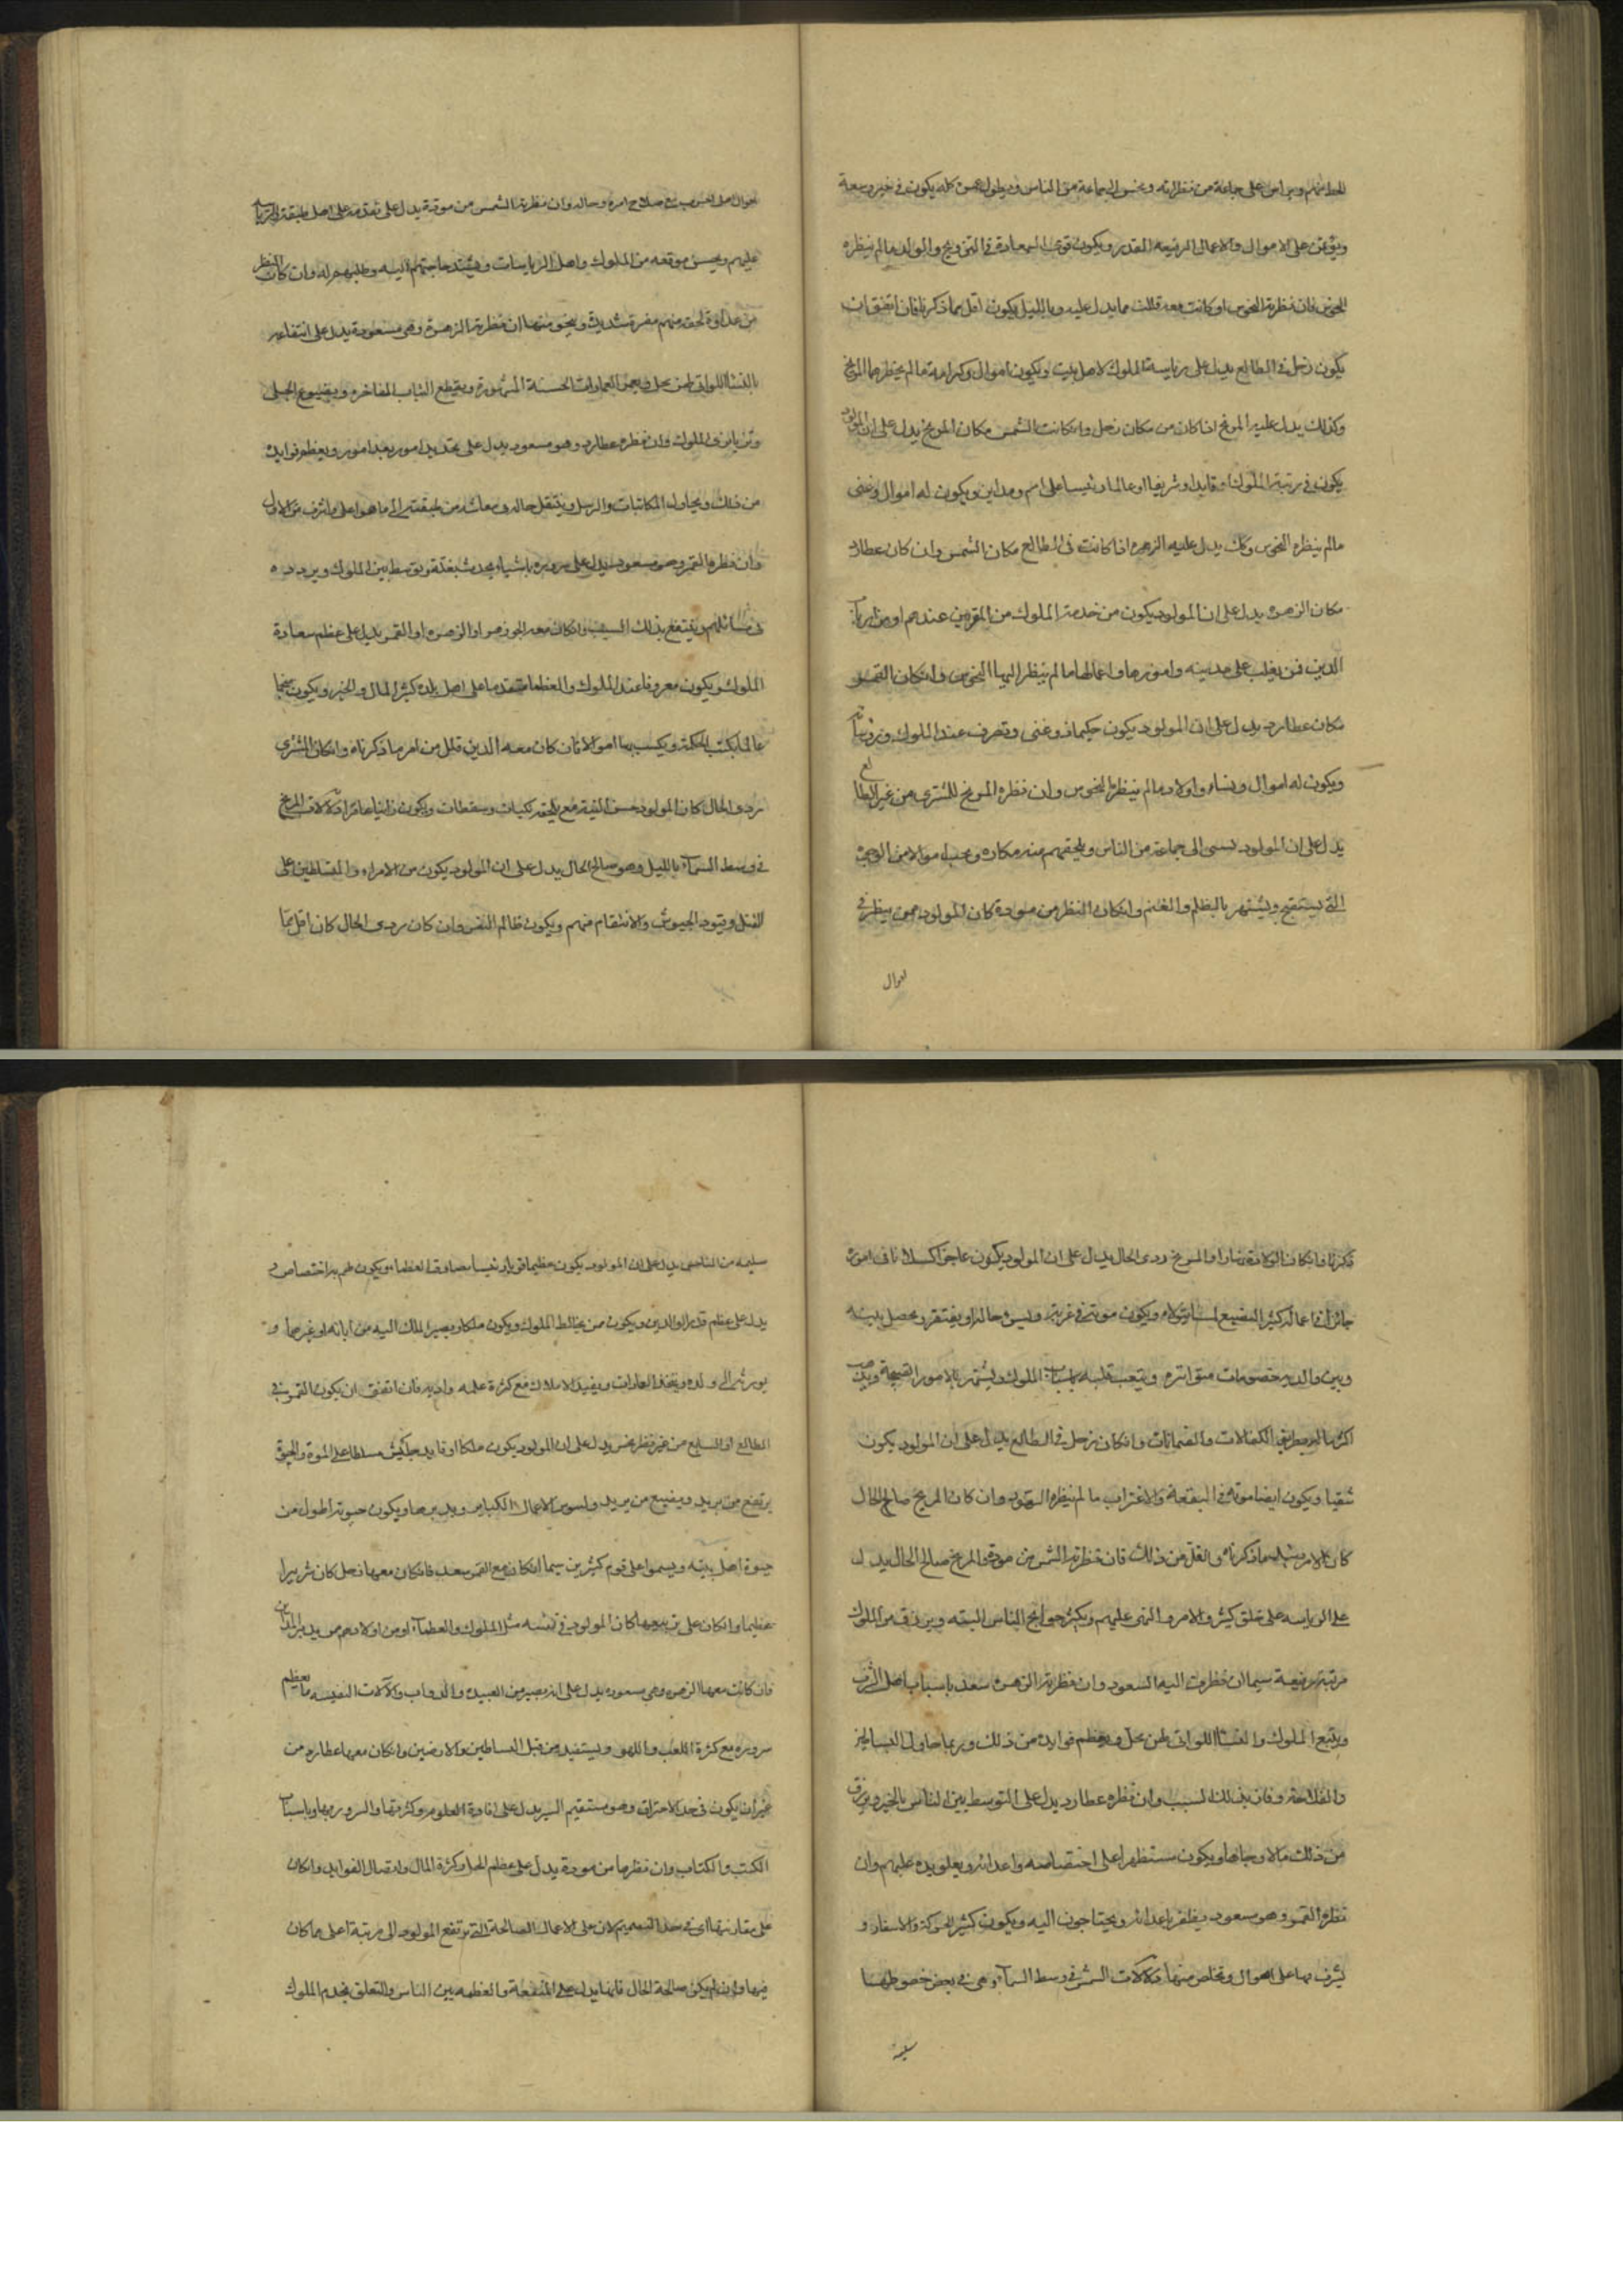 ويراس على جماعة من نظرائه ويحسن الى جماعة من الناس ويطول عمره كله يكون في خير وسعة
ويؤتمن على الاموال والاعمال الرفيعه القدر ويكون قوى السعادة في التزويج والولد مالم ينظره
النحوس فان نظرته النحوس او كانت معه قللت مما يدل عليه وبالليل يكون اقل مما ذكرنا فان اتفق ان
يكون زحل في الطالع يدل على رياسة الملوك لاهل بيت ويكون اموال وكرامة مالم ينظرها المريخ
وكذلك يدل عليه المريخ اذا كان من مكان زحل وان كانت الشمس مكان المريخ يدل على ان المولود
يكون في مرتبة الملوك او قايدا وشريفا او عالما رئيسا على امم ومداين ويكون له اموال وغنى
مالم ينظره النحوس وكك يدل عليه الزهره اذا كانت في الطالع مكان الشمس وان كان عطارد
مكان الزهره يدل على ان المولود يكون من خدمة الملوك من المقربين عندهم او من ارباب
الدين فمن يغلب على مدينه وامورها واعمالها مالم ينظر اليها النحوس وان كان القمر
مكان عطارد يدل على ان المولود يكون حكيما ذو غنى وتعرف عند الملوك
ويكون له اموال ونساء واولاد مالم ينظره النحوس وان نظره المريخ للمشترى من غير الطالع
يدل على ان المولود يسىء الى جماعة من الناس ويلحقهم منه مكاره ويجب اموالا من الوجوه
التي يستقبح ويشتهر بالظلم والغشم وان كان النظر من مودة كان المولود ممن ينظر في
احوال
احوال اهل الحرب صلاح امره وحاله وان نظرته الشمس من مودة يدل على تقدمه على اهل طبقته
عليهم ويحسن موقعه من الملوك واهل الرياسات ويشتد حاجتهم اليه وطلبهم له وان كان النظر
من عداوة لحقه منهم مضرة شديدة وينجو منها ان نظرته الزهرة وهي مسعودة يدل على انتفاعه
بالنساء اللواتي لهن محل ويعمر العمارات الحسنة المشهورة ويقطع الثياب الفاخره ويصوغ الحلى
وتزيا بزى الملوك وان نظره عطارد وهو مسعود يدل على تجديد امور بعد امور ويعظم فوايده
من ذلك ويحاول المكاتبات والرسل وينتقل حاله ومعاشه من طبقته الى ما هو اعلى واشرف من الاول
وان نظره القمر وهو مسعود يدل على سروره باشياء يحدث بغتة ويتوسط بين الملوك ويردده
في رسائلهم وينتفع بذلك السبب وان كان معه الجوزهر او الزهره او القمر يدل على عظم سعادة
الملوك ويكون معروفا عند الملوك والعظماء متقدما على اهل بلده كثير المال والخير ويكون منجما
عالما بكتب الحكمة ويكسب بها اموالا فان كان معه الذنب قلل من امر ما ذكرناه وان كان المشترى
ردى الحال كان المولود حسن النية مع يلحقه نكبات وسقطات ويكون دلالات المريخ
في وسط السماء بالليل وهو صالح الحال يدل على ان المولود يكون من الامراء والمتسلطين على
القتل ويقود الجيوش والانتقام منهم ويكون ظالم النفس وان كان ردى الحال كان اقل مما
ذكرنا فان كان الولادة نهارا والمريخ ردى الحال يدل على ان المولود يكون عاجزا كسلانا في اموره
جائرا في اعماله كثير التضييع لما يتولاه ويكون موته في غربة وليس حاله او يفتقر ويحصل بينه
وبين والديه خصومات متواترة ويتعب قلبه باسباب الملوك ويشتهر بالامور القبيحة
اكثرها بطريق الكفالات والضمانات وان كان زحل في الطالع يدل على ان المولود يكون
شقيا ويكون ايضا موته في البقعة والاغتراب مالم ينظره السعود وان كان المريخ صالح الحال
كان الامر مثل ما ذكرناه واقل من ذلك فان نظرته الشمس من مودة والمريخ صالح الحال يدل
على الرياسه على خلق كثير والامر والنهى عليهم ويكثر حوايج الناس اليه ويرزق من الملوك
مرتبة رفيعة سيما ان نظرت اليه السعود وان نظرته الزهره سعد باسباب اهل الشرف
ويتبع الملوك والنساء اللواتي لهن محل ويعظم فوايده من ذلك وربما حاول
والفلاحة وفاز بذلك السبب وان نظره عطارد يدل على التوسط بين الناس بالخير ويرزق
من ذلك مالا وجاها ويكون مستظهرا على اختصامه واعدائه ويعلو يده عليهم وان
نظره القمر وهو مسعود يظفر باعدائه ويحتاجون اليه ويكون كثير الحركة والاسفار و
يشرف بها على اهوال ويخلص منها دلالات الشمس في وسط السماء وهي في بعض حظوظها
سليمة
سليمه من المناحس يدل على ان المولود يكون عظيما قويا رئيسا مصادقا لعظماء ويكون لهم به اختصاص و
يدل على عظم قدر الوالدين ويكون ممن يخالط الملوك ويكون ملكا ويصير الملك اليه من ابائه او غيرهما و
يورثه الى ولده ويتخذ العمارات ويفيد الاملاك مع كثرة علمه وادبه فان اتفق ان يكون القمر في
الطالع او السابع من غير نظر نحس يدل على ان المولود يكون ملكا او قايد جيش مسلطا على الموت والحيوة
يرتفع من يريد ويضيع من يريد ويسوس الاعمال الكبار ويدبرها ويكون حيوته اطول من
حيوة اهل بيته ويسموا على قوم كثيرين سيما ان كان مع القمر سعد فان كان معها زحل كان شريرا
عظيما وان كان على تربيعها كان المولود في نفسه مثل الملوك والعظماء او من اولادهم من يدبر المداين
فان كانت معها الزهره وهي مسعوده يدل على انه يصير من العبيد والدواب والالات النفيسه ما يعظم
سروره مع كثرة اللعب واللهو ويستفيد من قبل البساطين والارضين وان كان معها عطارد من
غير ان يكون في حد الاحتراق وهو مستقيم السير يدل على افادة العلوم وكثرتها والسرور بها وباسباب
الكتب والكتاب وان نظرها من مودة يدل على عظم الحال وكثرة المال واتصال الفوايد وان كان
على مقارنتها اى في حد التصميم كان على الاعمال الصالحة التي ترتفع المولود الى مرتبة اعلى مما كان
فيها وان لم يكن صالحة الحال فانها يدل على المنفعة والعظمه بين الناس والتعلق بخدم الملوك